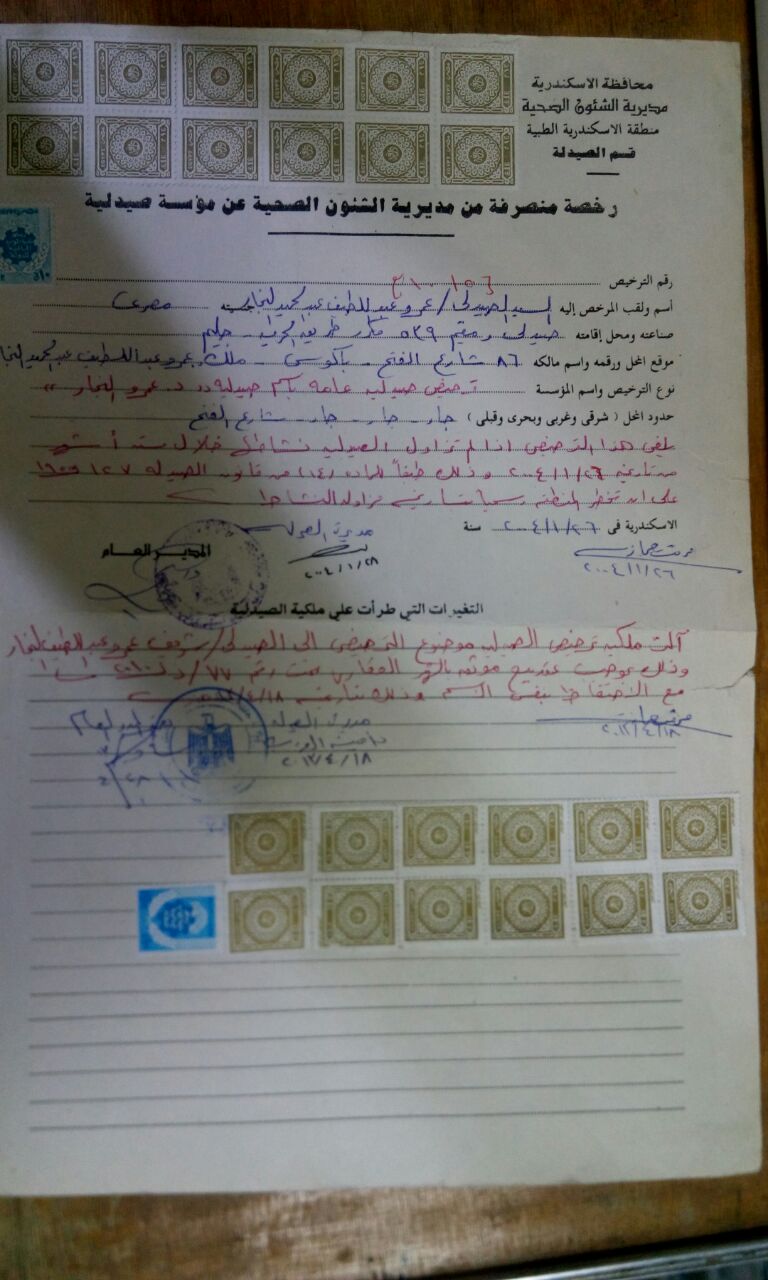 محافظة الاسكندرية
مديرية الشئون الصحية
منطقة الاسكندرية الطبية
قسم الصيدلة
رخصة منصرفة من مديرية الشئون الصحية عن مؤسسة صيدلية
رقم الترخيص
أسم ولقب المرخص إليه السيد الصيدلى / عمرو عبد اللطيف عبد الحميد النجار جنسيته مصرى
صناعته ومحل إقامته صيدلى ومقيم ٥٣٩ مكرر طريق الحرية - جليم
موقع المحل ورقمه واسم مالكه ٨٦ شارع الفتح - باكوس - ملك عمرو عبد اللطيف عبد الحميد النجار
نوع الترخيص واسم المؤسسة ترخيص صيدلية عامة باسم صيدلية د. عمرو النجار
حدود المحل ( شرقى وغربى وبحرى وقبلى ) جار - جار - جار - شارع الفتح
يلغى هذا الترخيص اذا لم تزاول الصيدلية نشاطها خلال ستة أشهر
من تاريخه ٢٠٠٤/١/٢٦ وذلك طبقاً للمادة (١٤) من قانون الصيدلة ١٢٧ ١٩٥٥
على ان تخطر المنطقة رسميا بتاريخ مزاولة النشاط
الاسكندرية فى ٢٠٠٤/١/٢٦ سنة
مديرة الصيدلة
المدير العام
٢٠٠٤/١/٢٨
٢٠٠٤/١/٢٦
التغيرات التي طرأت علي ملكية الصيدلية
آلت ملكية ترخيص الصيدلية موضوع الترخيص الى الصيدلى / شريف عمرو عبد اللطيف النجار
وذلك بموجب عقد بيع موثق بالشهر العقارى تحت رقم
مع الاحتفاظ بنفس الاسم وذلك بتاريخ ٢٠١٢/٤/١٨
مديرة الصيدلة
٢٠١٢/٤/١٨
٢٠١٢/٤/١٨